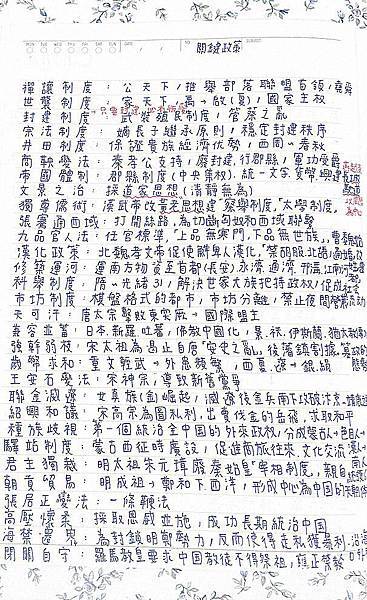 MON TUE WED THU FRI SAT SUN
關鍵政策
禪讓制度：公天下，推舉部落聯盟首領，堯舜
世襲制度：家天下，禹→啟(夏)，國家主權
封建制度：武裝殖民制度，管蔡之亂
宗法制度：嫡長子繼承原則，穩定封建秩序
井田制度：保證貴族經濟優勢，西周～春秋
商鞅變法：秦孝公支持，廢封建，行郡縣，軍功受爵
帝國體制：郡縣制度(中央集权)，統一文字、貨幣、興建
文景之治：採道家思想(清靜無為)
獨尊儒術：漢武帝改黃老思想建"察舉制度"、"太學制度"
張騫通西域：打開絲路，為切斷匈奴和西域聯繫
九品官人法：任官標準，"上品無寒門，下品無世族"
漢化政策：北魏孝文帝促使鮮卑人漢化，禁胡服
修築運河：運南方物資至首都(長安)，永濟、通濟、邗溝、江南河
科舉制度：隋→光緒31，解決世家大族把持政权
市坊制度：棋盤格式的都市，市坊分離，禁止夜間營業
天可汗：唐太宗擊敗東突厥→國際盟主
兼容並蓄：日本、新羅、吐蕃，佛教中國化，景、祆、伊斯蘭、猶太教
強幹弱枝：宋太祖為遏止自唐"安史之亂"後藩鎮割據
歲幣求和：重文輕武→外患頻繁，西夏、遼→銀、絹
王安石變法：宋神宗，導致新舊黨爭
聯金滅遼：女真族(金)崛起，滅遼後金兵南下攻破汴京
紹興和議：宋高宗為圖私利，出賣伐金的岳飛，求取和平
種族歧視：第一個統治全中國的外來政权，分成蒙古人→色目人
驛站制度：蒙古西征時廣設，促進商旅往來、文化交流
君主獨裁：明太祖朱元璋廢秦始皇"宰相制度"，親自
朝貢貿易：明成祖→鄭和下西洋，形成中心為中國的
張居正變法：一條鞭法
高壓懷柔：採取恩威並施，成功長期統治中國
海禁遷界：為封鎖明鄭勢力，反而使得走私獲暴利
閉關自守：羅馬教皇要求中國教徒不得祭祖，雍正禁教